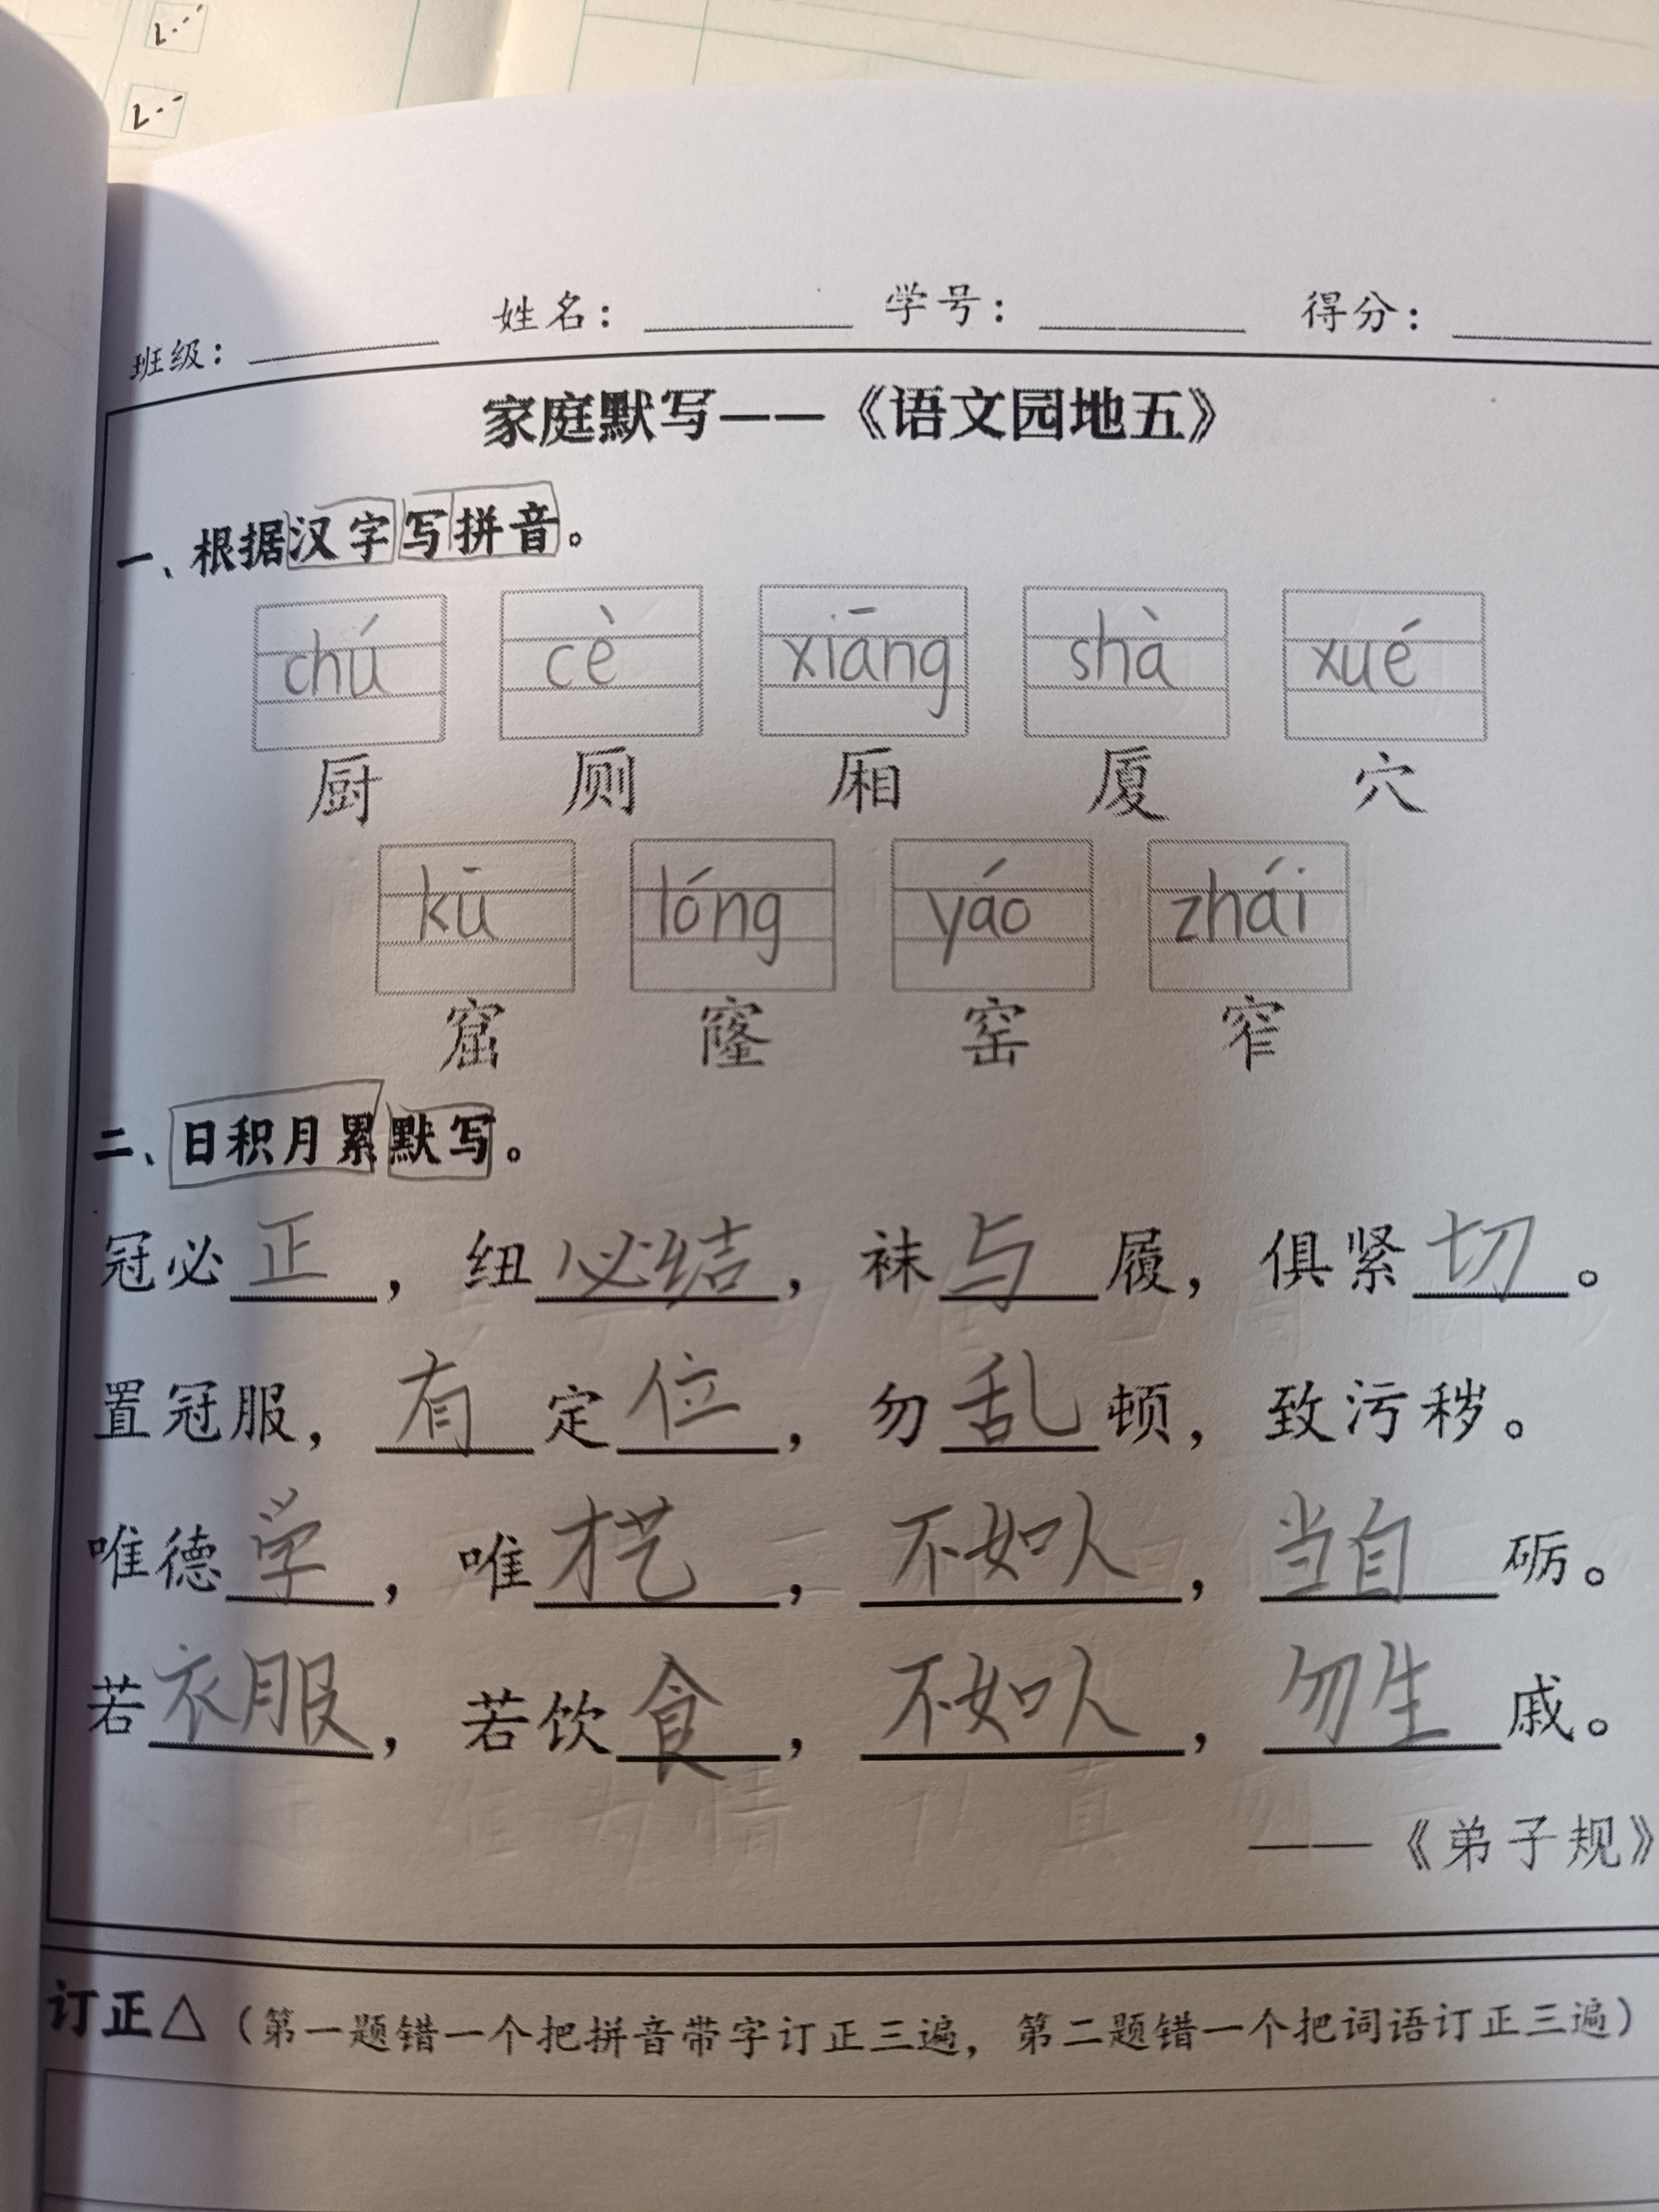 班级：
姓名：
学号：
得分：
家庭默写——《语文园地五》
一、根据汉字写拼音。
chú cè xiāng shà xué
厨 厕 厢 厦 穴
kū lóng yáo zhái
窟 窿 窑 窄
二、日积月累默写。
冠必正，纽必结，袜与履，俱紧切。
置冠服，有定位，勿乱顿，致污秽。
唯德学，唯才艺，不如人，当自砺。
若衣服，若饮食，不如人，勿生戚。
——《弟子规》
订正△（第一题错一个把拼音带字订正三遍，第二题错一个把词语订正三遍）